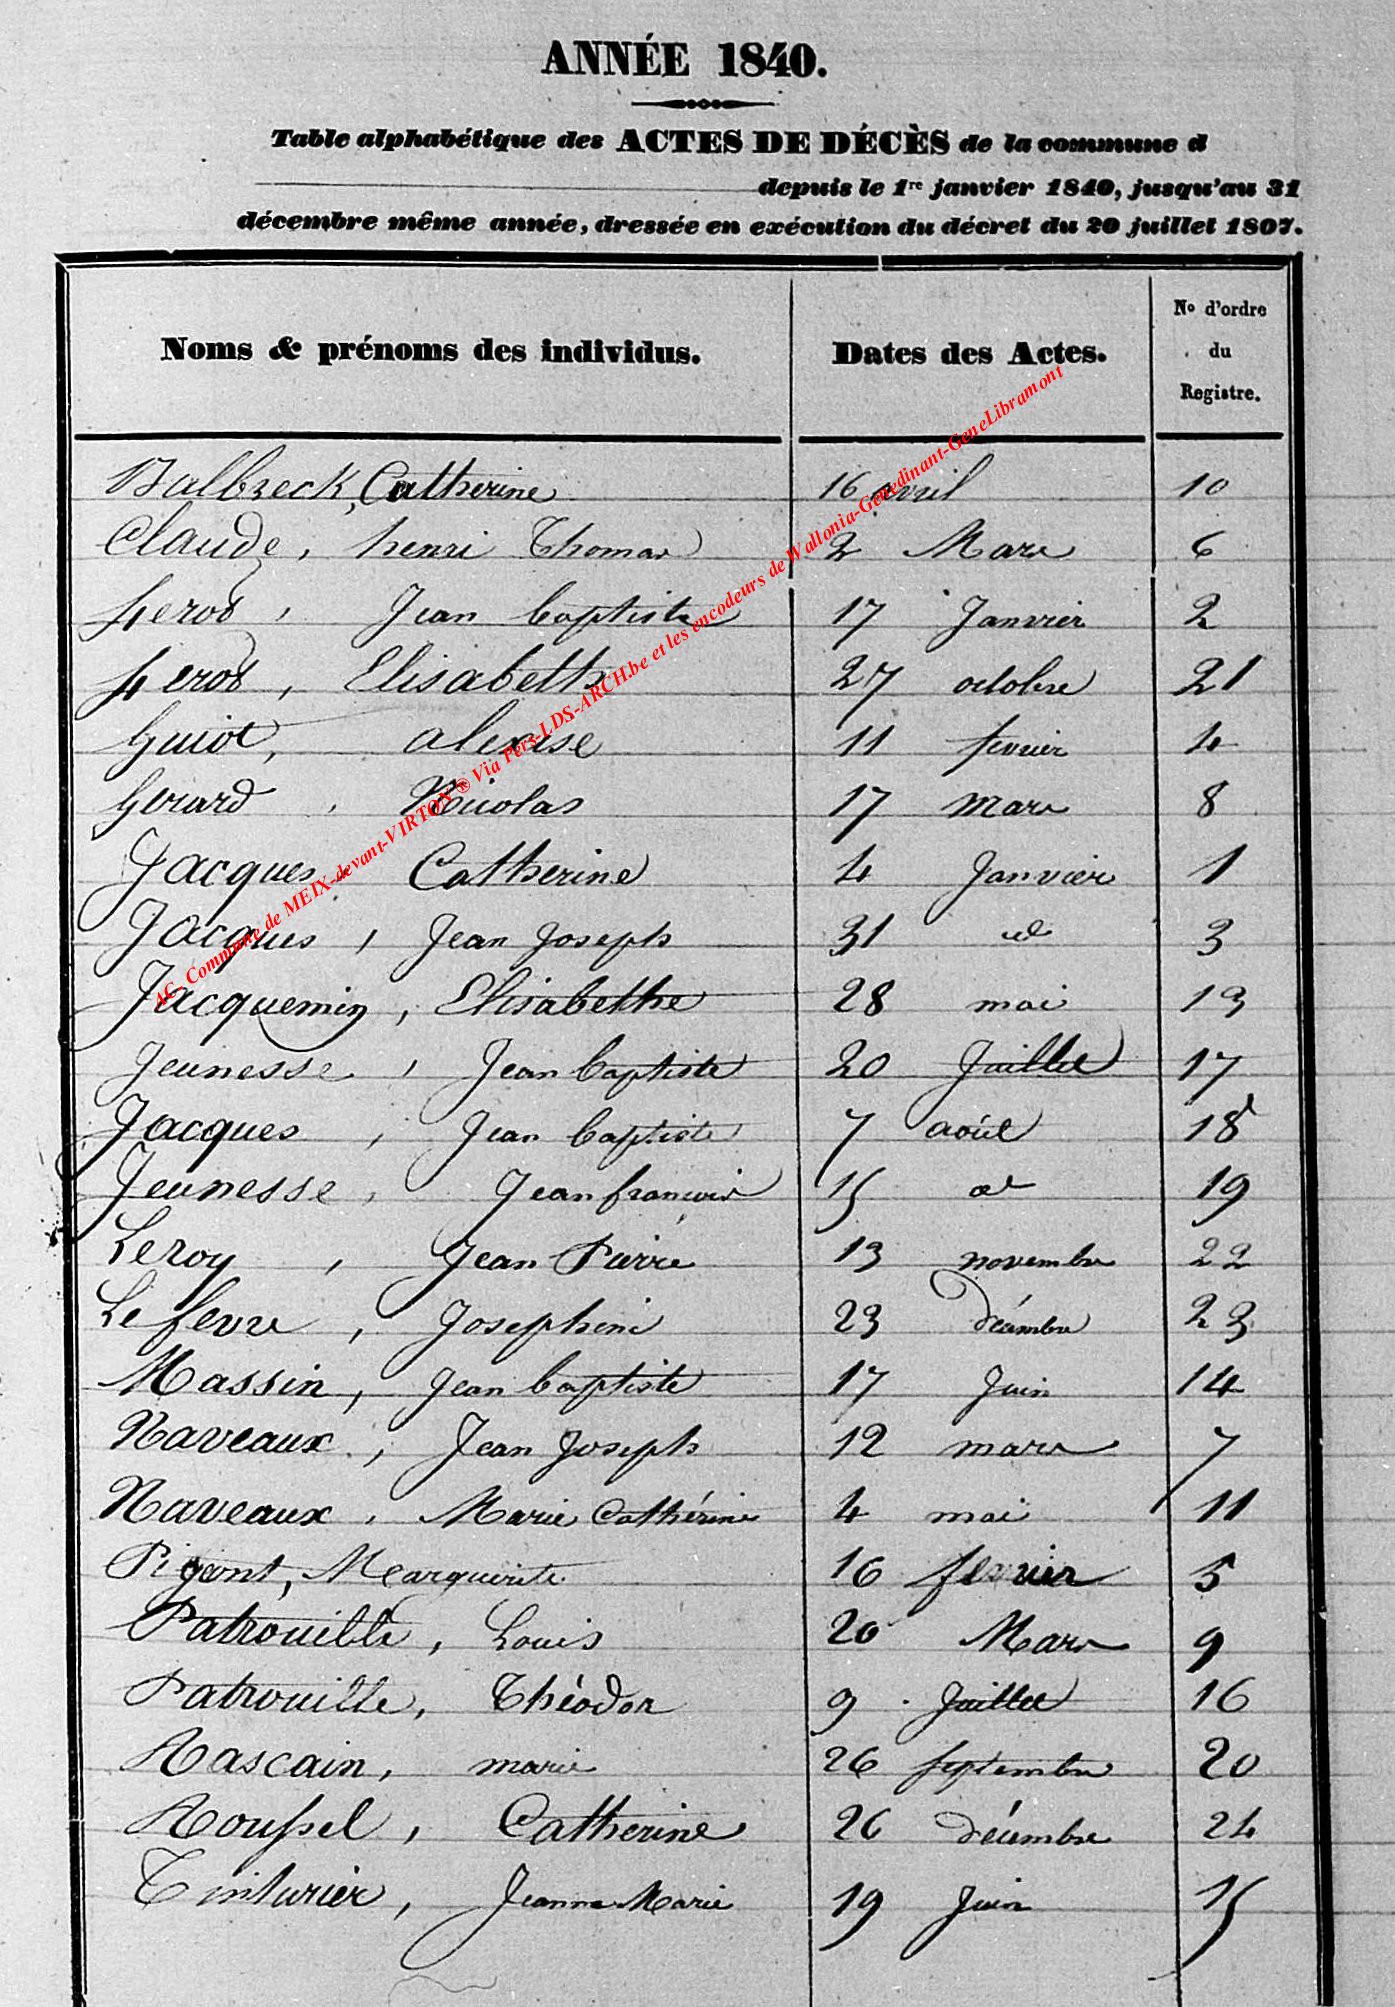 ANNÉE 1840.
Table alphabétique des ACTES DE DÉCÈS de la commune d
depuis le 1re janvier 1840, jusqu'au 31
décembre même année, dressée en exécution du décret du 20 juillet 1807.
Noms & prénoms des individus. Dates des Actes. No d'ordre du Registre.
AC- Commune de MEIX-devant-VIRTON® Via Pers-LDS-ARCH.be et les encodeurs de Wallonia-Genedinant-GeneLibramont
Balbreck, Catherine 16 avril 10
Claude, henri Thomas 2 Mars 6
Jean baptiste 17 Janvier 2
Elisabeth 27 octobre 21
Guiot, alexise 11 fevrier 4
Gerard, Nicolas 17 mars 8
Jacques, Catherine 4 Janvier 1
Jacques, Jean Joseph 31 id 3
Jacquemin, Elisabethe 28 mai 13
Jeunesse, Jean baptiste 20 Juillet 17
Jacques, Jean baptiste 7 août 18
Jeunesse, Jean francois 15 id 19
Leroy, Jean Pierre 13 novembre 22
Lefevre, Josephine 23 décembre 23
Massin, Jean baptiste 17 Juin 14
Naveaux, Jean Joseph 12 mars 7
Naveaux, Marie Cathérine 4 mai 11
Pigeont, Marguerite 16 fevrier 5
Patrouille, Louis 20 Mars 9
Patrouille, Théodor 9 Juillet 16
Rascain, marie 26 septembre 20
Roussel, Catherine 26 décembre 24
Tinturier, Jeanne Marie 19 Juin 15